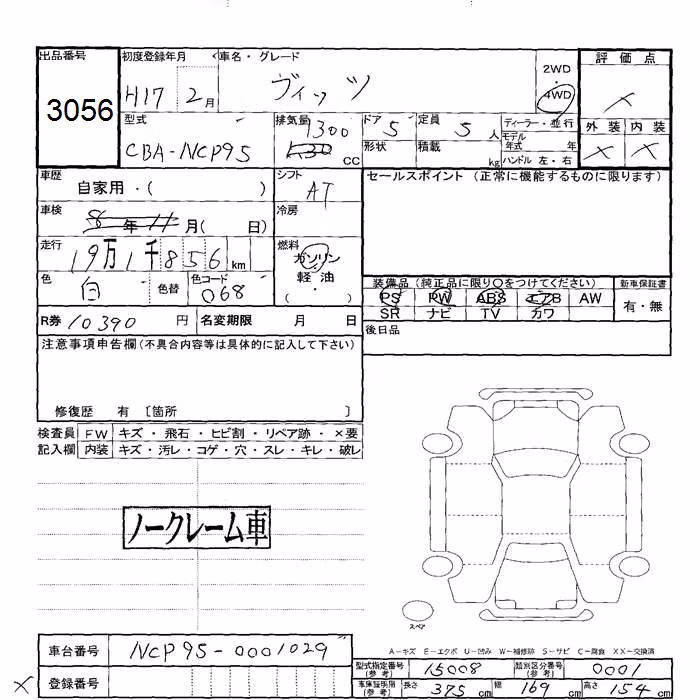 出品番号 初度登録年月 車名・グレード 評価点
3056 H17 2月 ヴィッツ 2WD 4WD ×
型式 排気量 ドア 定員 ディーラー・並行 外装 内装
CBA-NCP95 1300 CC 5 5人 モデル年式 年 × ×
形状 積載 kg ハンドル 左・右
車歴 シフト セールスポイント (正常に機能するものに限ります)
自家用・( ) AT
車検 8年11月( 日) 冷房
走行 19万1千856km 燃料 ガソリン
色 白 色替 色コード 068 軽油 ( ・ )
装備品 (純正品に限り○をつけてください) 新車保証書
PS PW ABS エアB AW 有・無
SR ナビ TV カワ
R券 10390 円 名変期限 月 日
後日品
注意事項申告欄(不具合内容等は具体的に記入して下さい)
修復歴 有 [箇所 ]
検査員 FW キズ・飛石・ヒビ割・リペア跡・×要
記入欄 内装 キズ・汚レ・コゲ・穴・スレ・キレ・破レ
ノークレーム車
スペア
A-キズ E-エクボ U-凹み W-補修跡 S-サビ C-腐食 XX-交換済
車台番号 NCP95-0001029
型式指定番号(参考) 15008 類別区分番号(参考) 0001
× 登録番号
車庫証明用(参考) 長さ 375 cm 幅 169 cm 高さ 154 cm